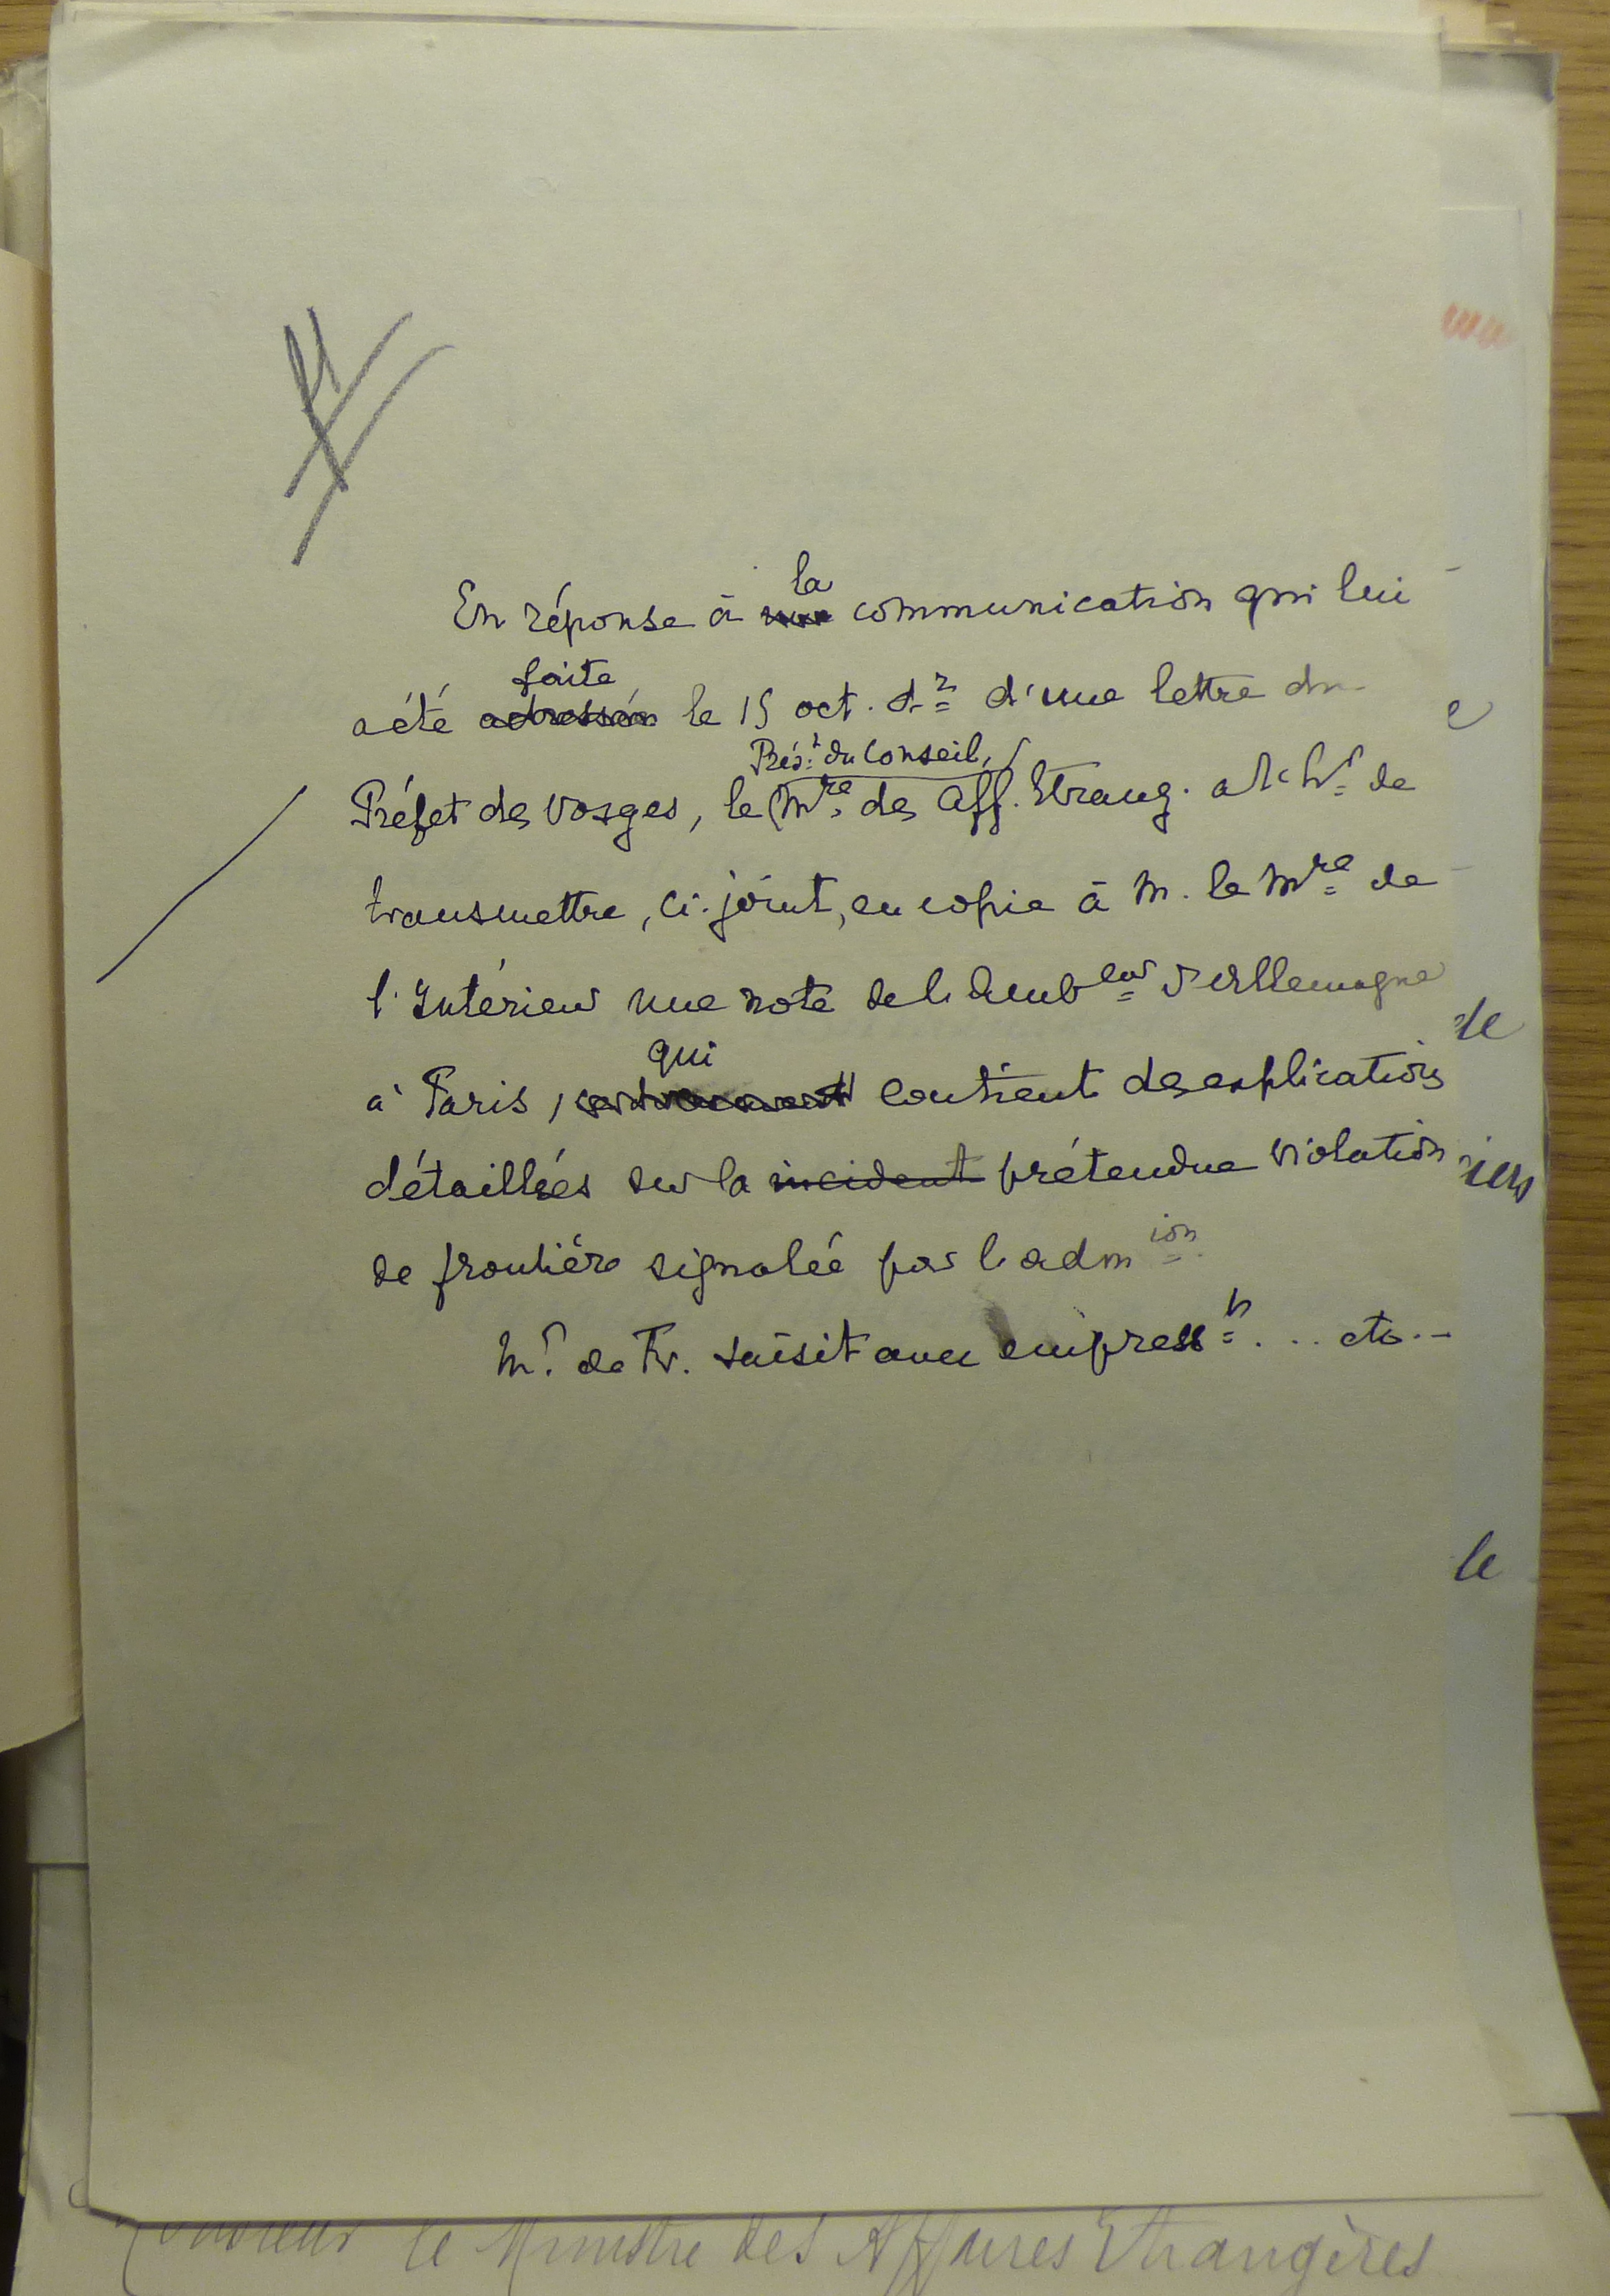 la
En réponse à communication qui lui
faite
a été adressée le 15 oct. dr d'une lettre du
Prést du Conseil,
Préfet des Vosges, le Mre des Aff. Etrang. a l'hr de
transmettre, ci-joint, en copie à M. le Mre de
l'Intérieur une note de l'Ambeur d'Allemagne
qui
à Paris, contient des explications
détaillées sur la incident prétendue violation
de frontière signalée par l'admion
Mr de Fr. saisit avec empresst... etc..
le
le Ministre des Affaires Etrangères